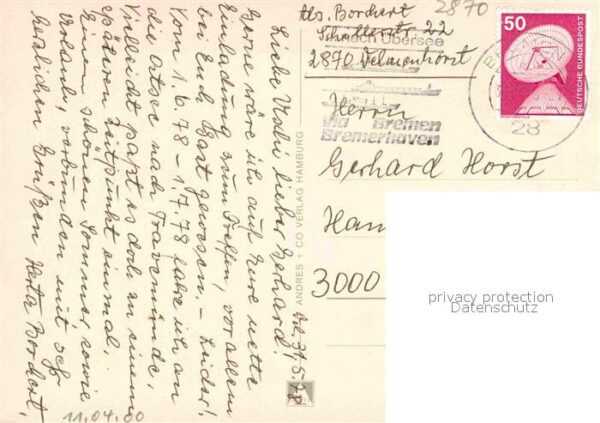 2870
Abs. Borchert
Schollerstr. 22
2870 Delmenhorst
nach Übersee
via Bremen
Bremerhaven
50
DEUTSCHE BUNDESPOST
28
Herrn
Gerhard Horst
Han
3000
privacy protection
Datenschutz
ANDRES + CO VERLAG HAMBURG
Liebe lieber Gerhard!
Gerne wäre ich auf Eure nette
Einladung zum Treffen, vor allem
bei Euch Gast gewesen. - Leider!
Vom 1.6.78 - 1.7.78 fahre ich an
die Ostsee nach Travemünde.
Vielleicht paßt es doch an einem
späteren Zeitpunkt einmal.
Einen schönen Sommer, sowie
Urlaub, verbunden mit sehr
herzlichen Grüßen Herta Borchert.
11.04.00